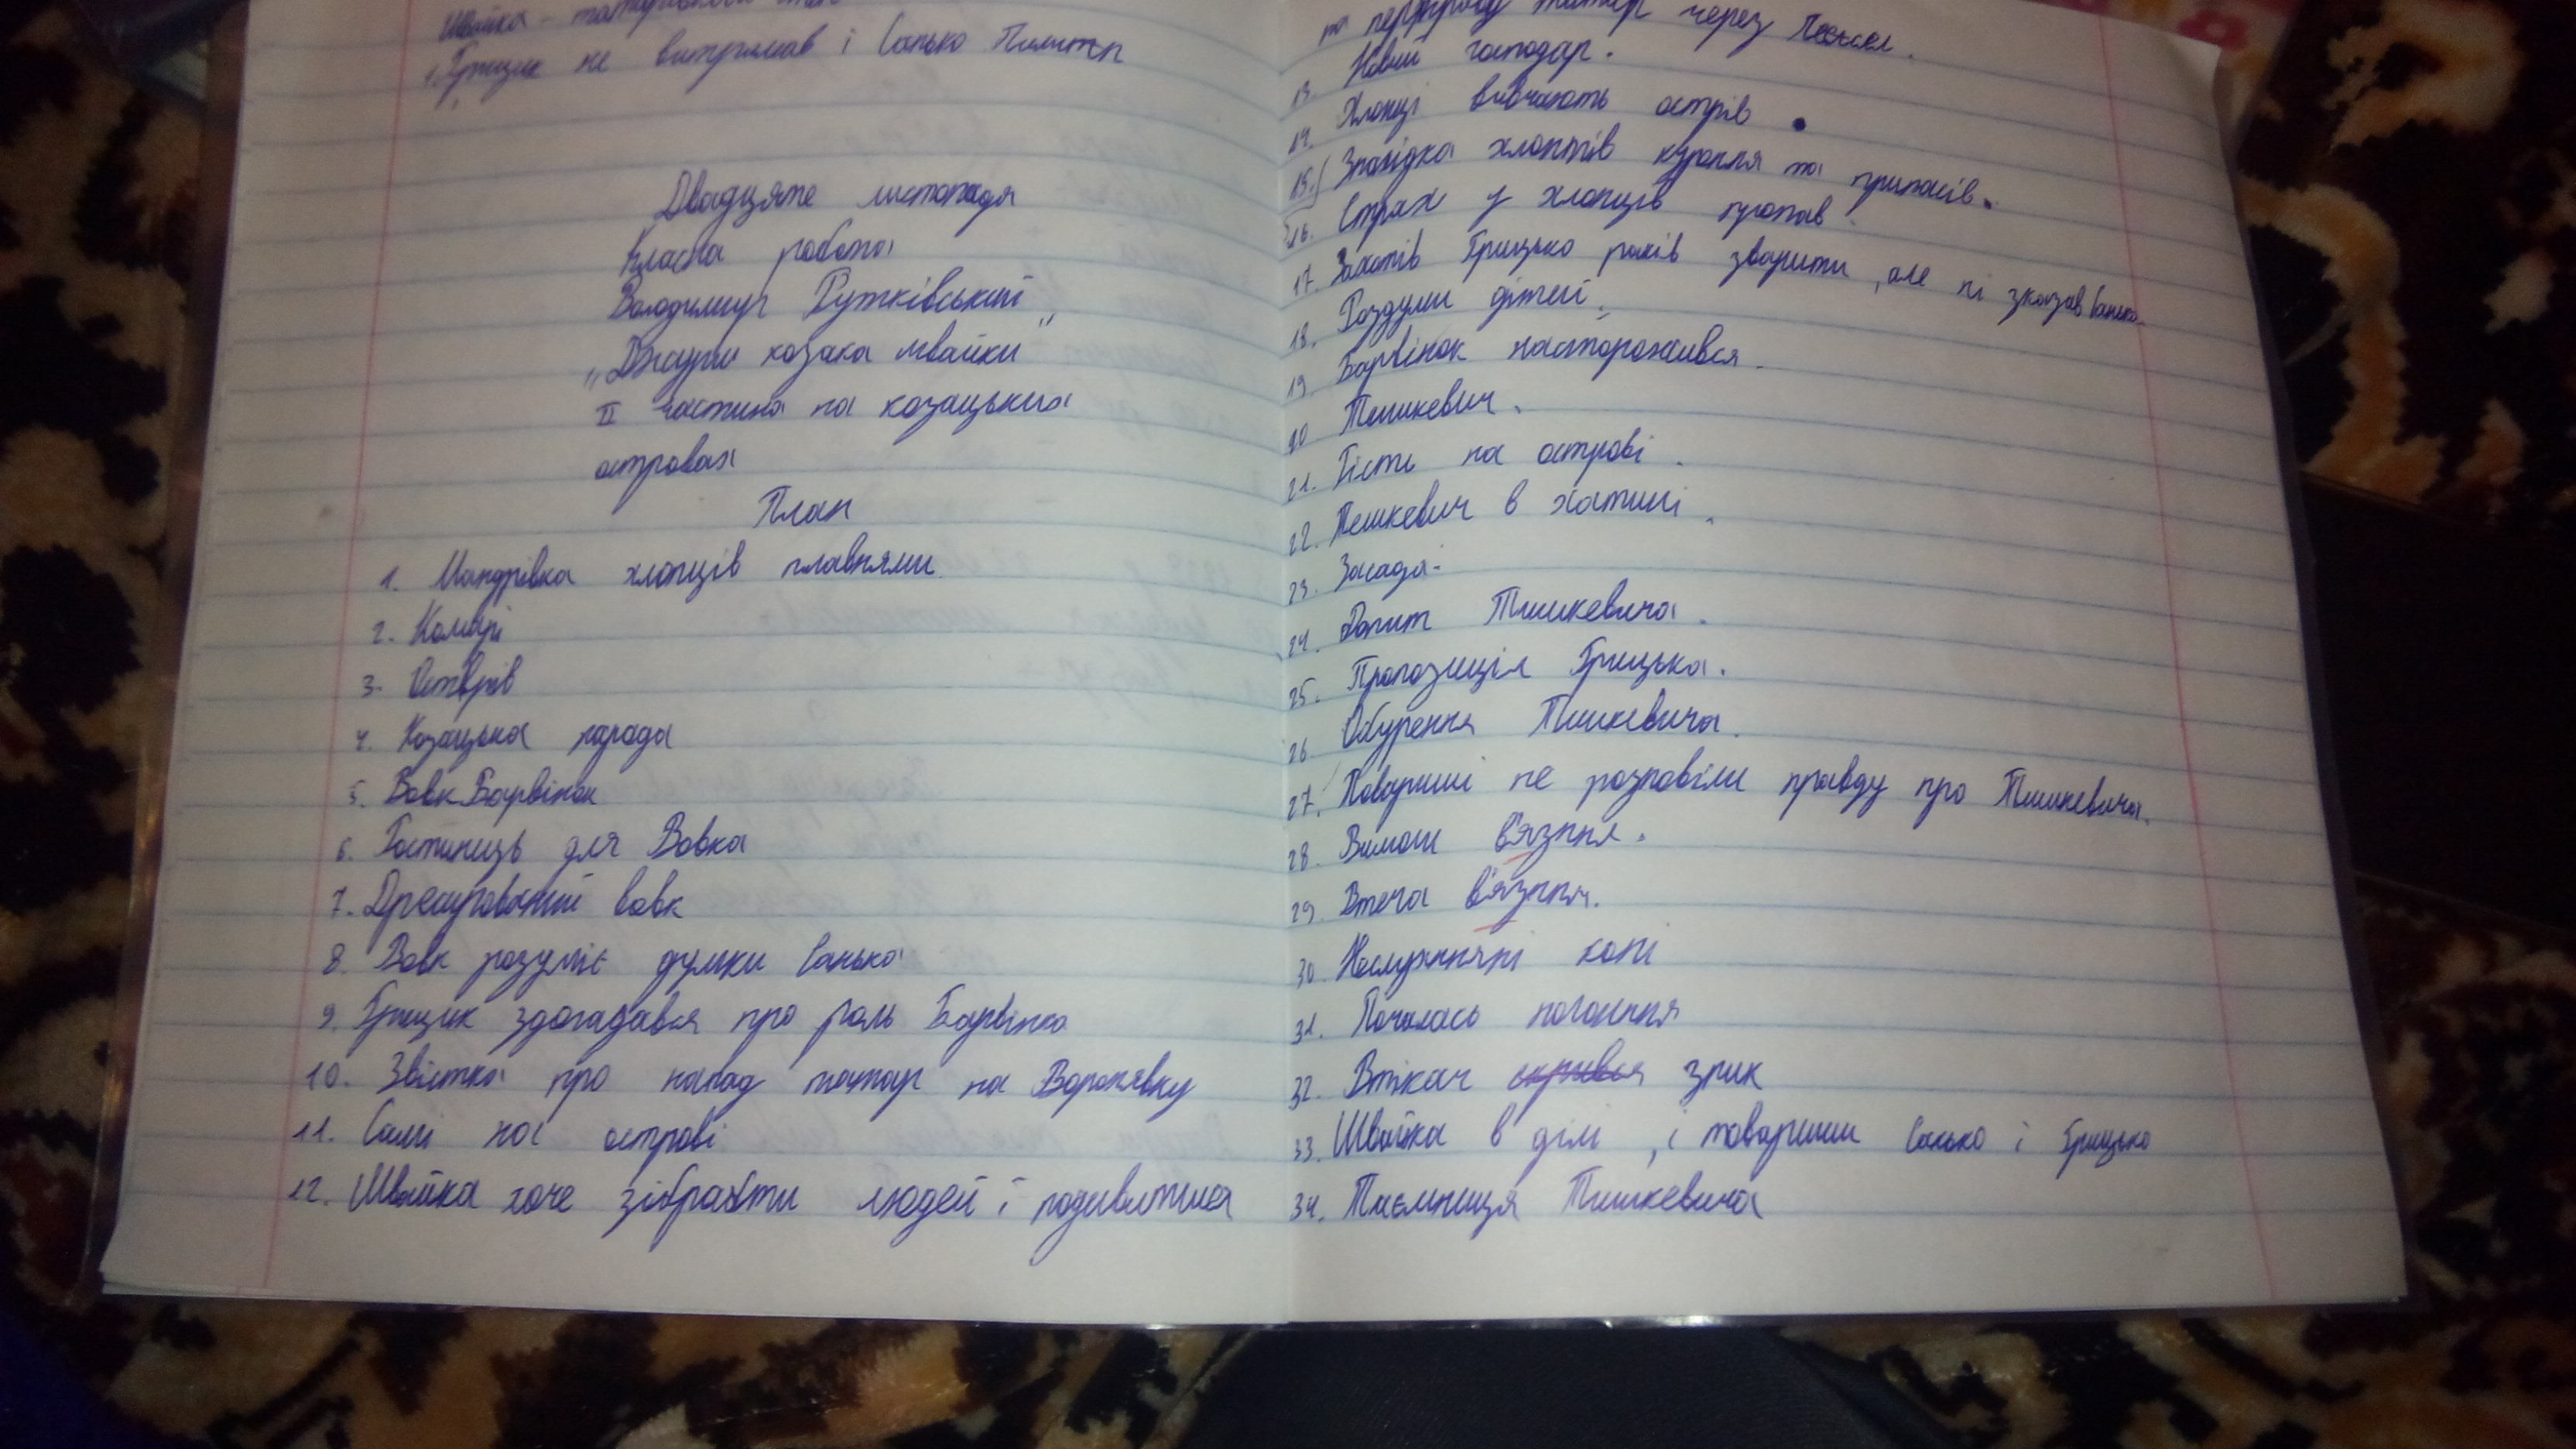 Швайка - татарський
Грицик не витримав і Санько
Двадцяте листопада
Класна робота
Володимир Рутківський
„Джури козака Швайки"
II частина на козацьких
островах
План
1. Мандрівка хлопців плавнями
2. Комарі
3. Острів
4. Козацька нарада
5. Вовк Барвінок
6. Гостинець для Вовка
7. Дресирований вовк
8. Вовк розуміє думки Санька
9. Грицик здогадався про роль Барвінка
10. Звістка про напад татар на Воронівку
11. Самі на острові
12. Швайка хоче зібрати людей і подивитися
та переправу татар через
13. Новий господар.
14. Хлопці вивчають острів.
15. Знахідка хлопців куріння та припасів.
16. Страх у хлопців пропав.
17. Захотів Грицько раків зварити, але ні зказав Санько.
18. Роздуми дітей.
19 Барвінок насторожився.
20 Тишкевич.
21. Гість на острові.
22. Тешкевич в хатині.
23. Засада.
24. Допит Тишкевича.
25. Пропозиція Грицька.
26 Обурення Тишкевича.
27. Товариші не розповіли правду про Тишкевича.
28. Вимоги в'язння.
29. Втеча в'язння.
30. Неслухняні коні
31. Почалась погонння
32. Втікач скрився зник
33. Швайка в дімі, і товариши Санько і Грицько
34. Таємниця Тишкевича